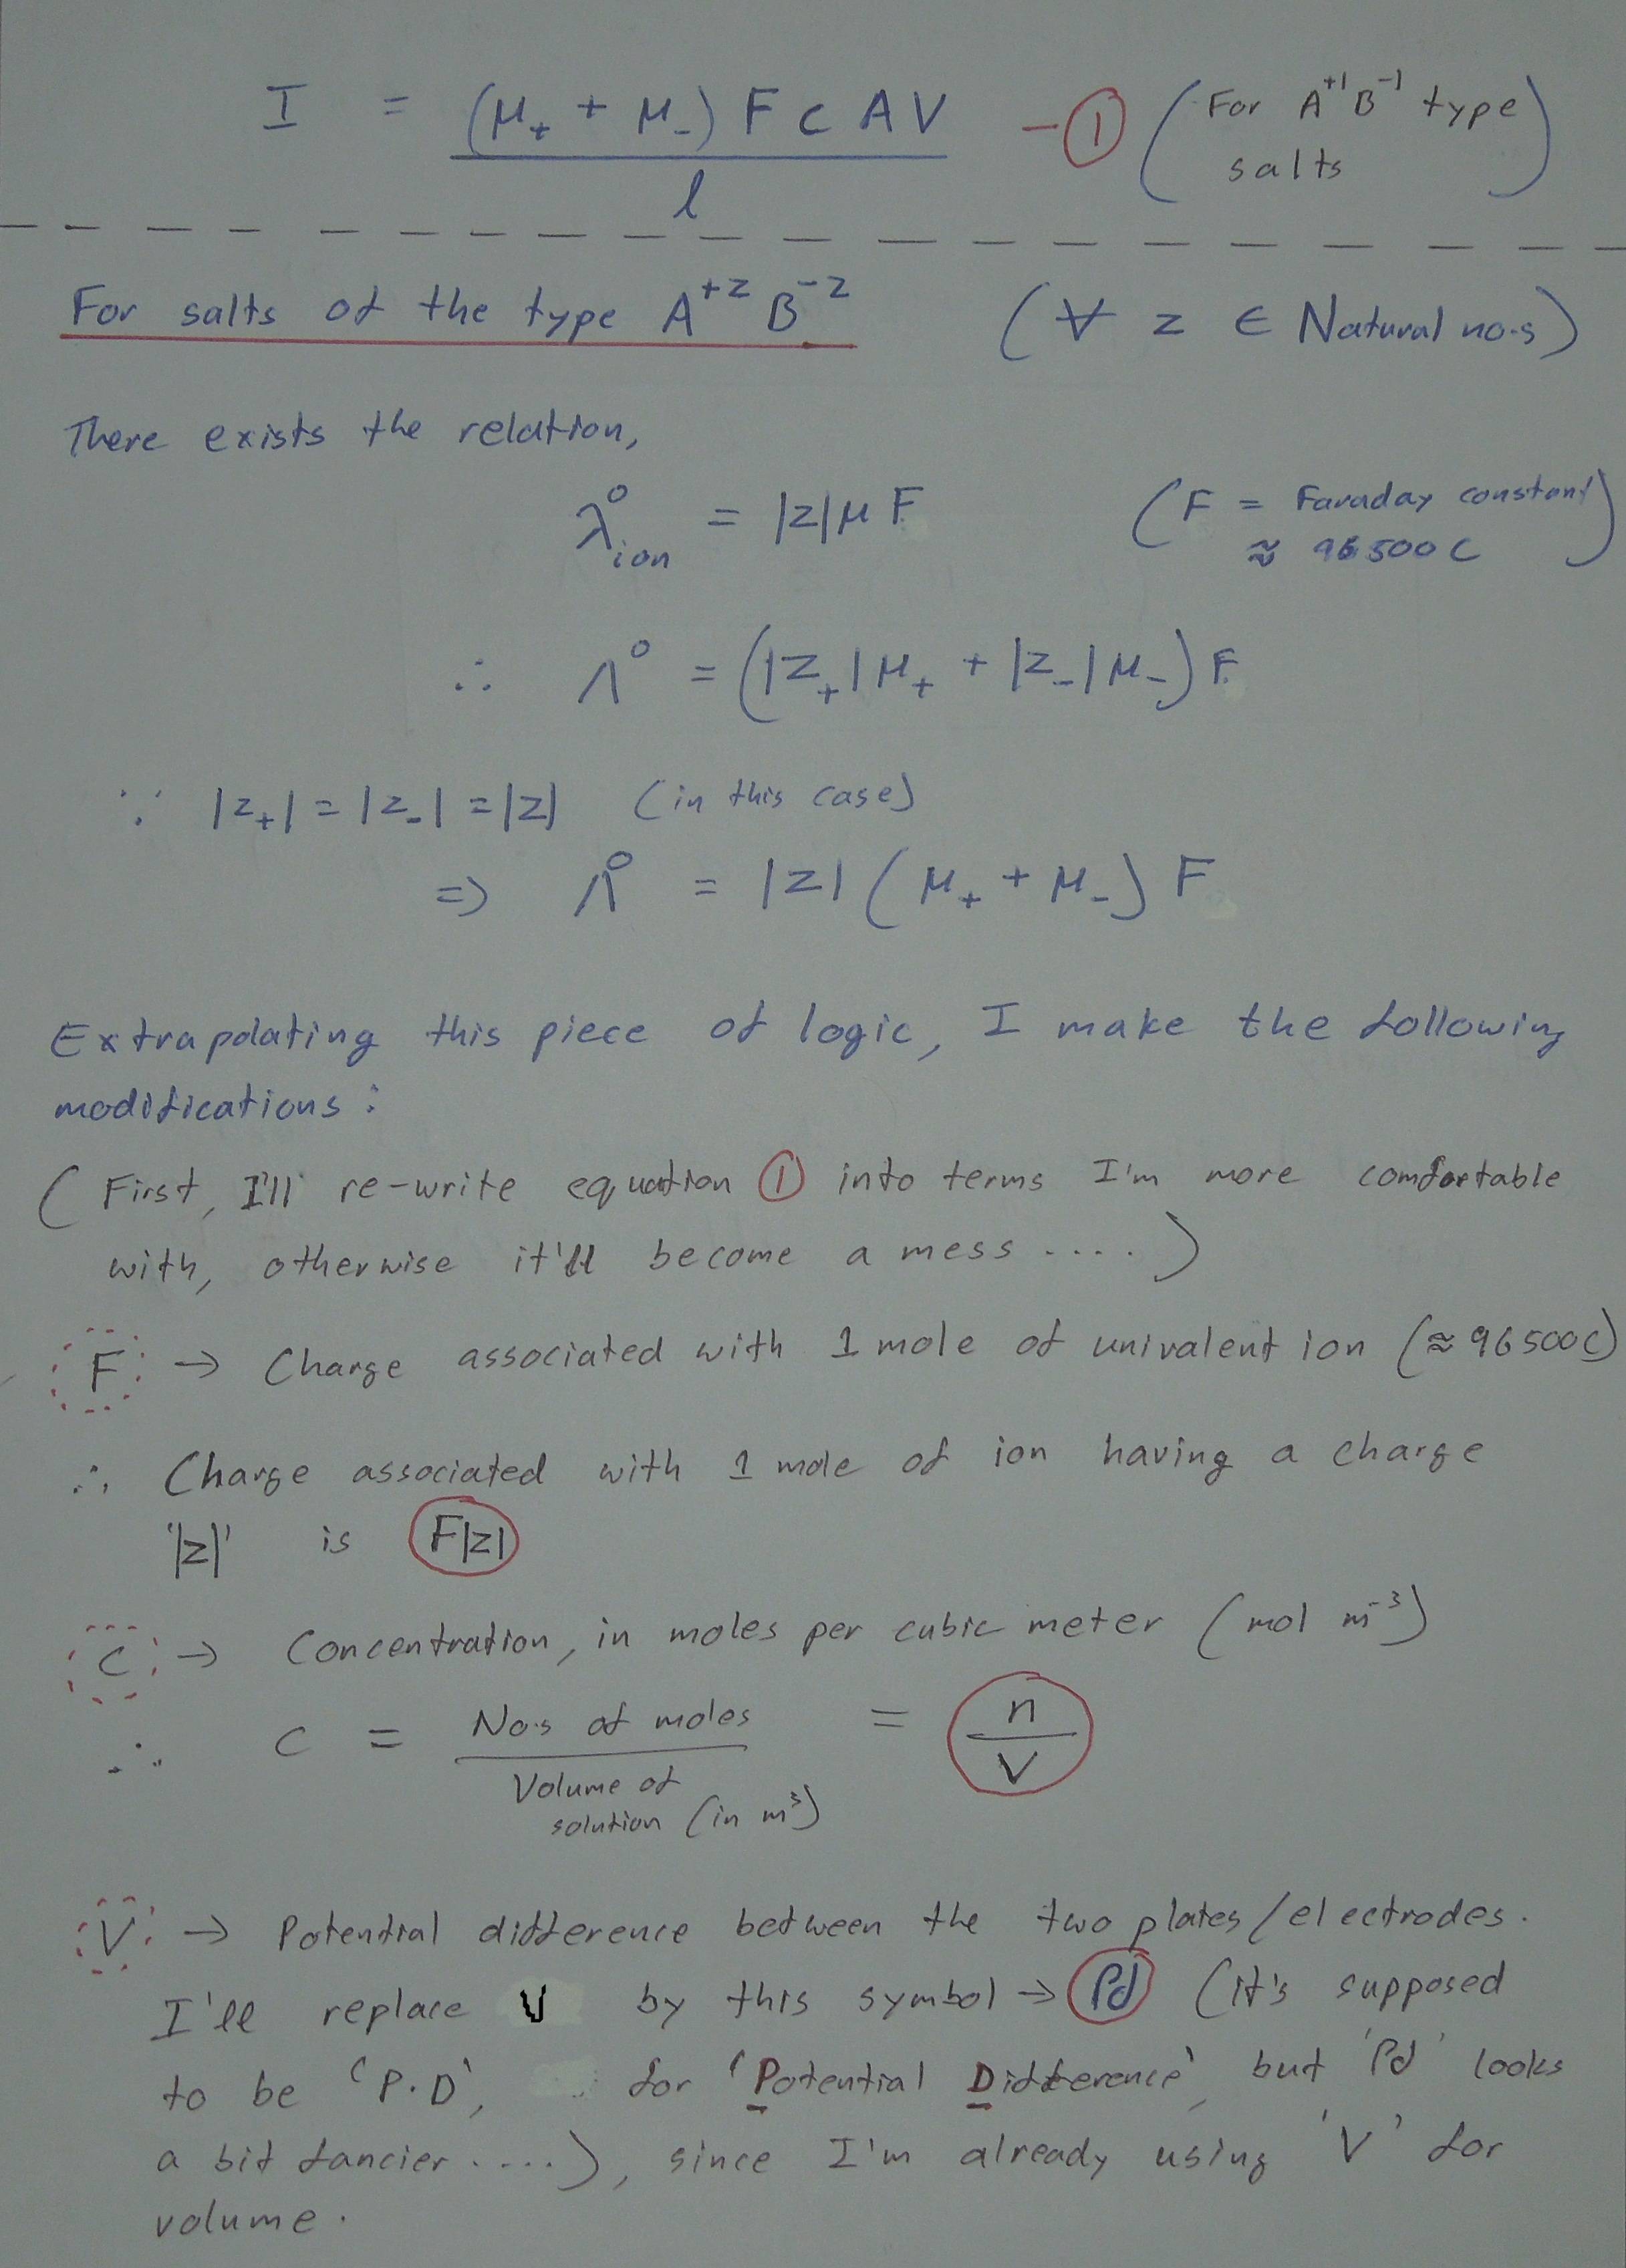 I = (μ₊ + μ₋) F c A V / l - ① (For A⁺¹B⁻¹ type salts)
For salts of the type A⁺ᶻ B⁻ᶻ (∀ z ∈ Natural no.s)
There exists the relation,
λ°ion = |z|μ F (F = Faraday constant ≈ 96500 C)
∴ Λ° = (|z₊|μ₊ + |z₋|μ₋) F
∵ |z₊| = |z₋| = |z| (in this case)
=> Λ° = |z| (μ₊ + μ₋) F
Extrapolating this piece of logic, I make the following
modifications:
(First, I'll re-write equation ① into terms I'm more comfortable
with, otherwise it'll become a mess ....)
F → Charge associated with 1 mole of univalent ion (≈ 96500C)
∴ Charge associated with 1 mole of ion having a charge
'|z|' is F|z|
C → Concentration, in moles per cubic meter (mol m⁻³)
∴ C = No.s of moles / Volume of solution (in m³) = n / V
V → Potential difference between the two plates/electrodes.
I'll replace V by this symbol → Pd (it's supposed
to be 'P.D', for 'Potential Difference', but 'Pd' looks
a bit fancier ....), since I'm already using 'V' for
volume.